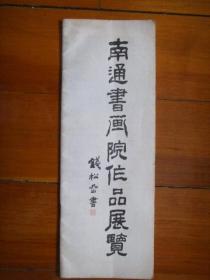 南通書画院作品展覽
錢松喦書